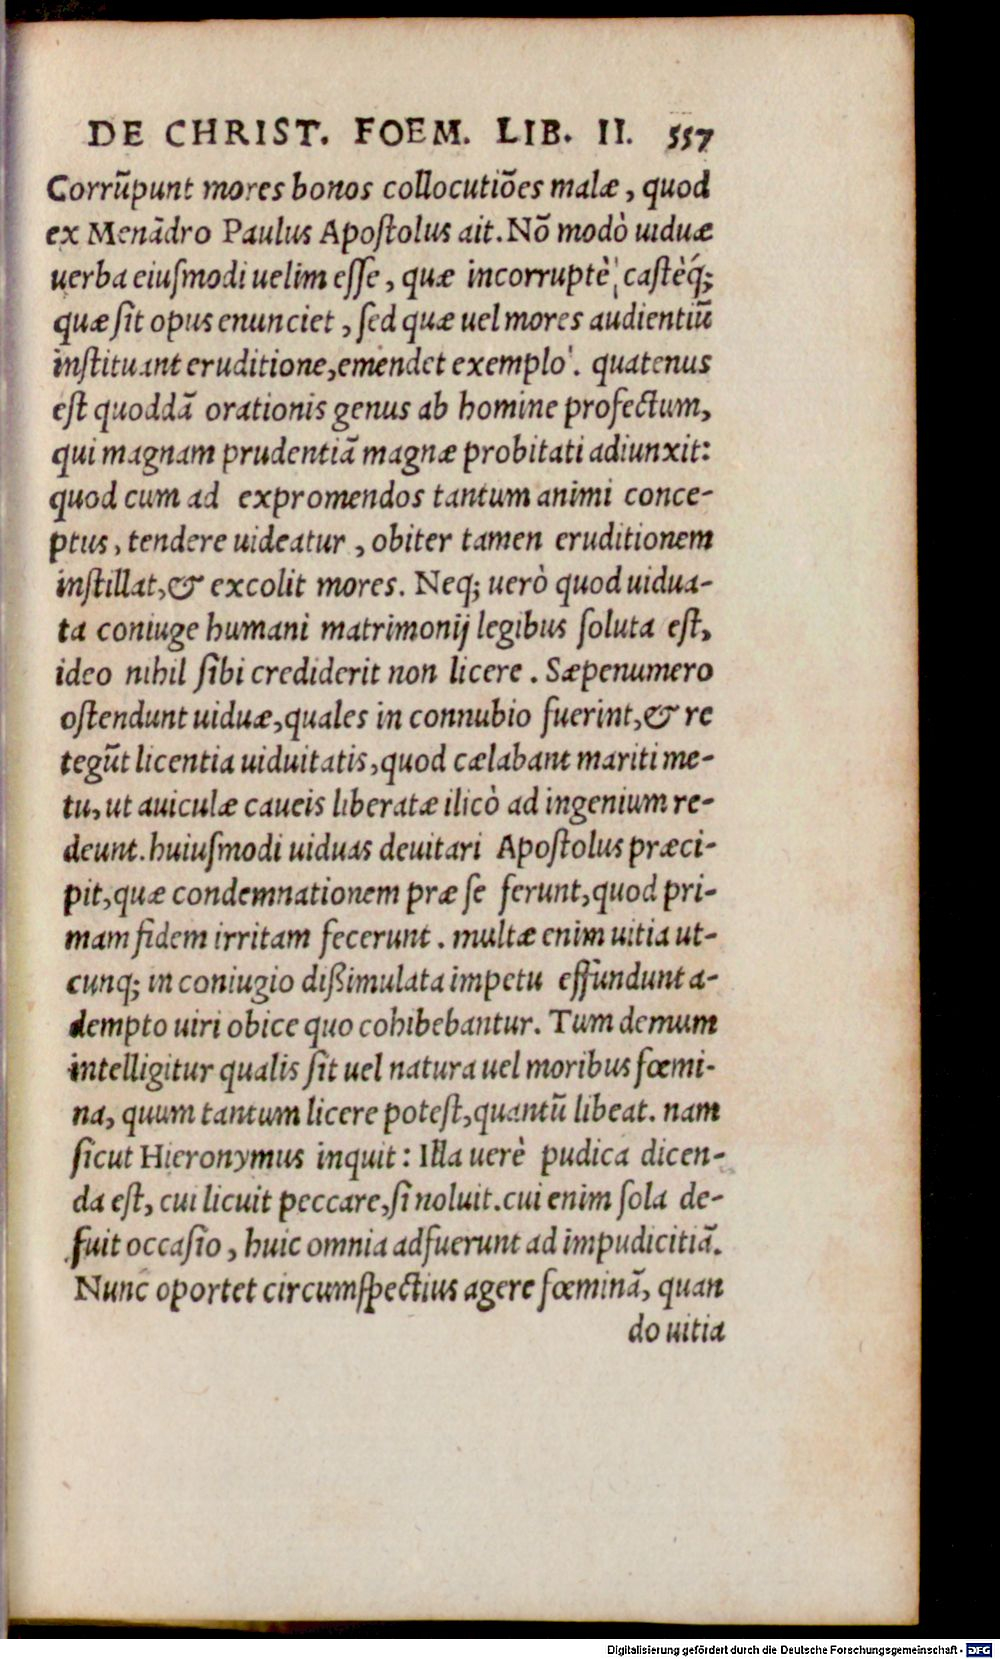 DE CHRIST. FOEM. LIB. II. 557
Corrūpunt mores bonos collocutiōes malæ, quod
ex Menādro Paulus Apoſtolus ait. Nō modò uiduæ
uerba eiuſmodi uelim eſſe, quæ incorruptè, caſtèq́;
quæ ſit opus enunciet, ſed quæ uel mores audientiū
inſtituant eruditione, emendet exemplo. quatenus
eſt quoddā orationis genus ab homine profectum,
qui magnam prudentiā magnæ probitati adiunxit:
quod cum ad expromendos tantum animi conce-
ptus, tendere uideatur, obiter tamen eruditionem
inſtillat, & excolit mores. Neq; uerò quod uidua-
ta coniuge humani matrimonij legibus ſoluta eſt,
ideo nihil ſibi crediderit non licere. Sæpenumero
oſtendunt uiduæ, quales in connubio fuerint, & re
tegūt licentia uiduitatis, quod cælabant mariti me-
tu, ut auiculæ caueis liberatæ ilicò ad ingenium re-
deunt. huiuſmodi uiduas deuitari Apoſtolus præci-
pit, quæ condemnationem præ ſe ferunt, quod pri-
mam fidem irritam fecerunt. multæ enim uitia ut-
cunq; in coniugio dißimulata impetu effundunt a-
dempto uiri obice quo cohibebantur. Tum demum
intelligitur qualis ſit uel natura uel moribus fœmi-
na, quum tantum licere poteſt, quantū libeat. nam
ſicut Hieronymus inquit: Illa uerè pudica dicen-
da eſt, cui licuit peccare, ſi noluit. cui enim ſola de-
fuit occaſio, huic omnia adfuerunt ad impudicitiā.
Nunc oportet circumſpectius agere fœminā, quan
do uitia
Digitalisierung gefördert durch die Deutsche Forschungsgemeinschaft - DFG